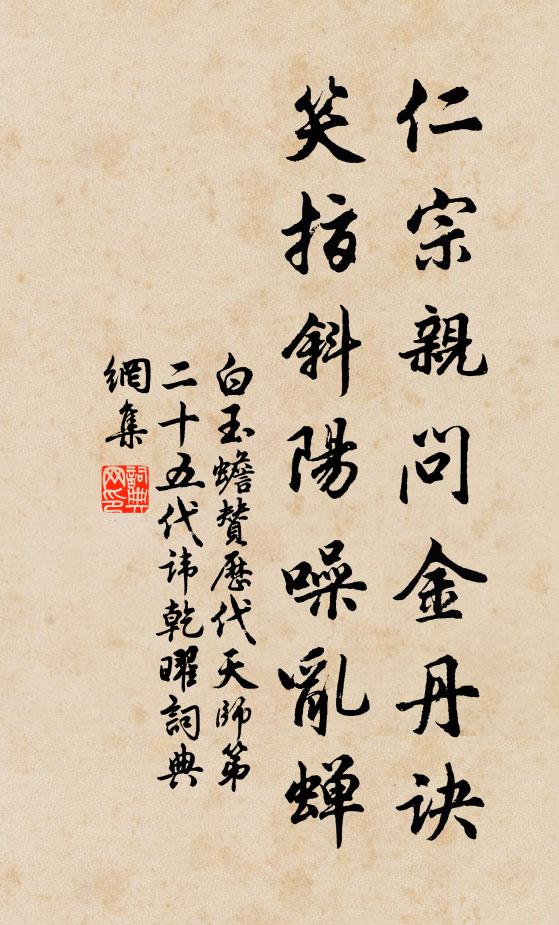 仁宗親問金丹訣
笑指斜陽噪亂蟬
白玉蟾贊歷代天師第
二十五代諱乾曜詞典
網集
詞典網印